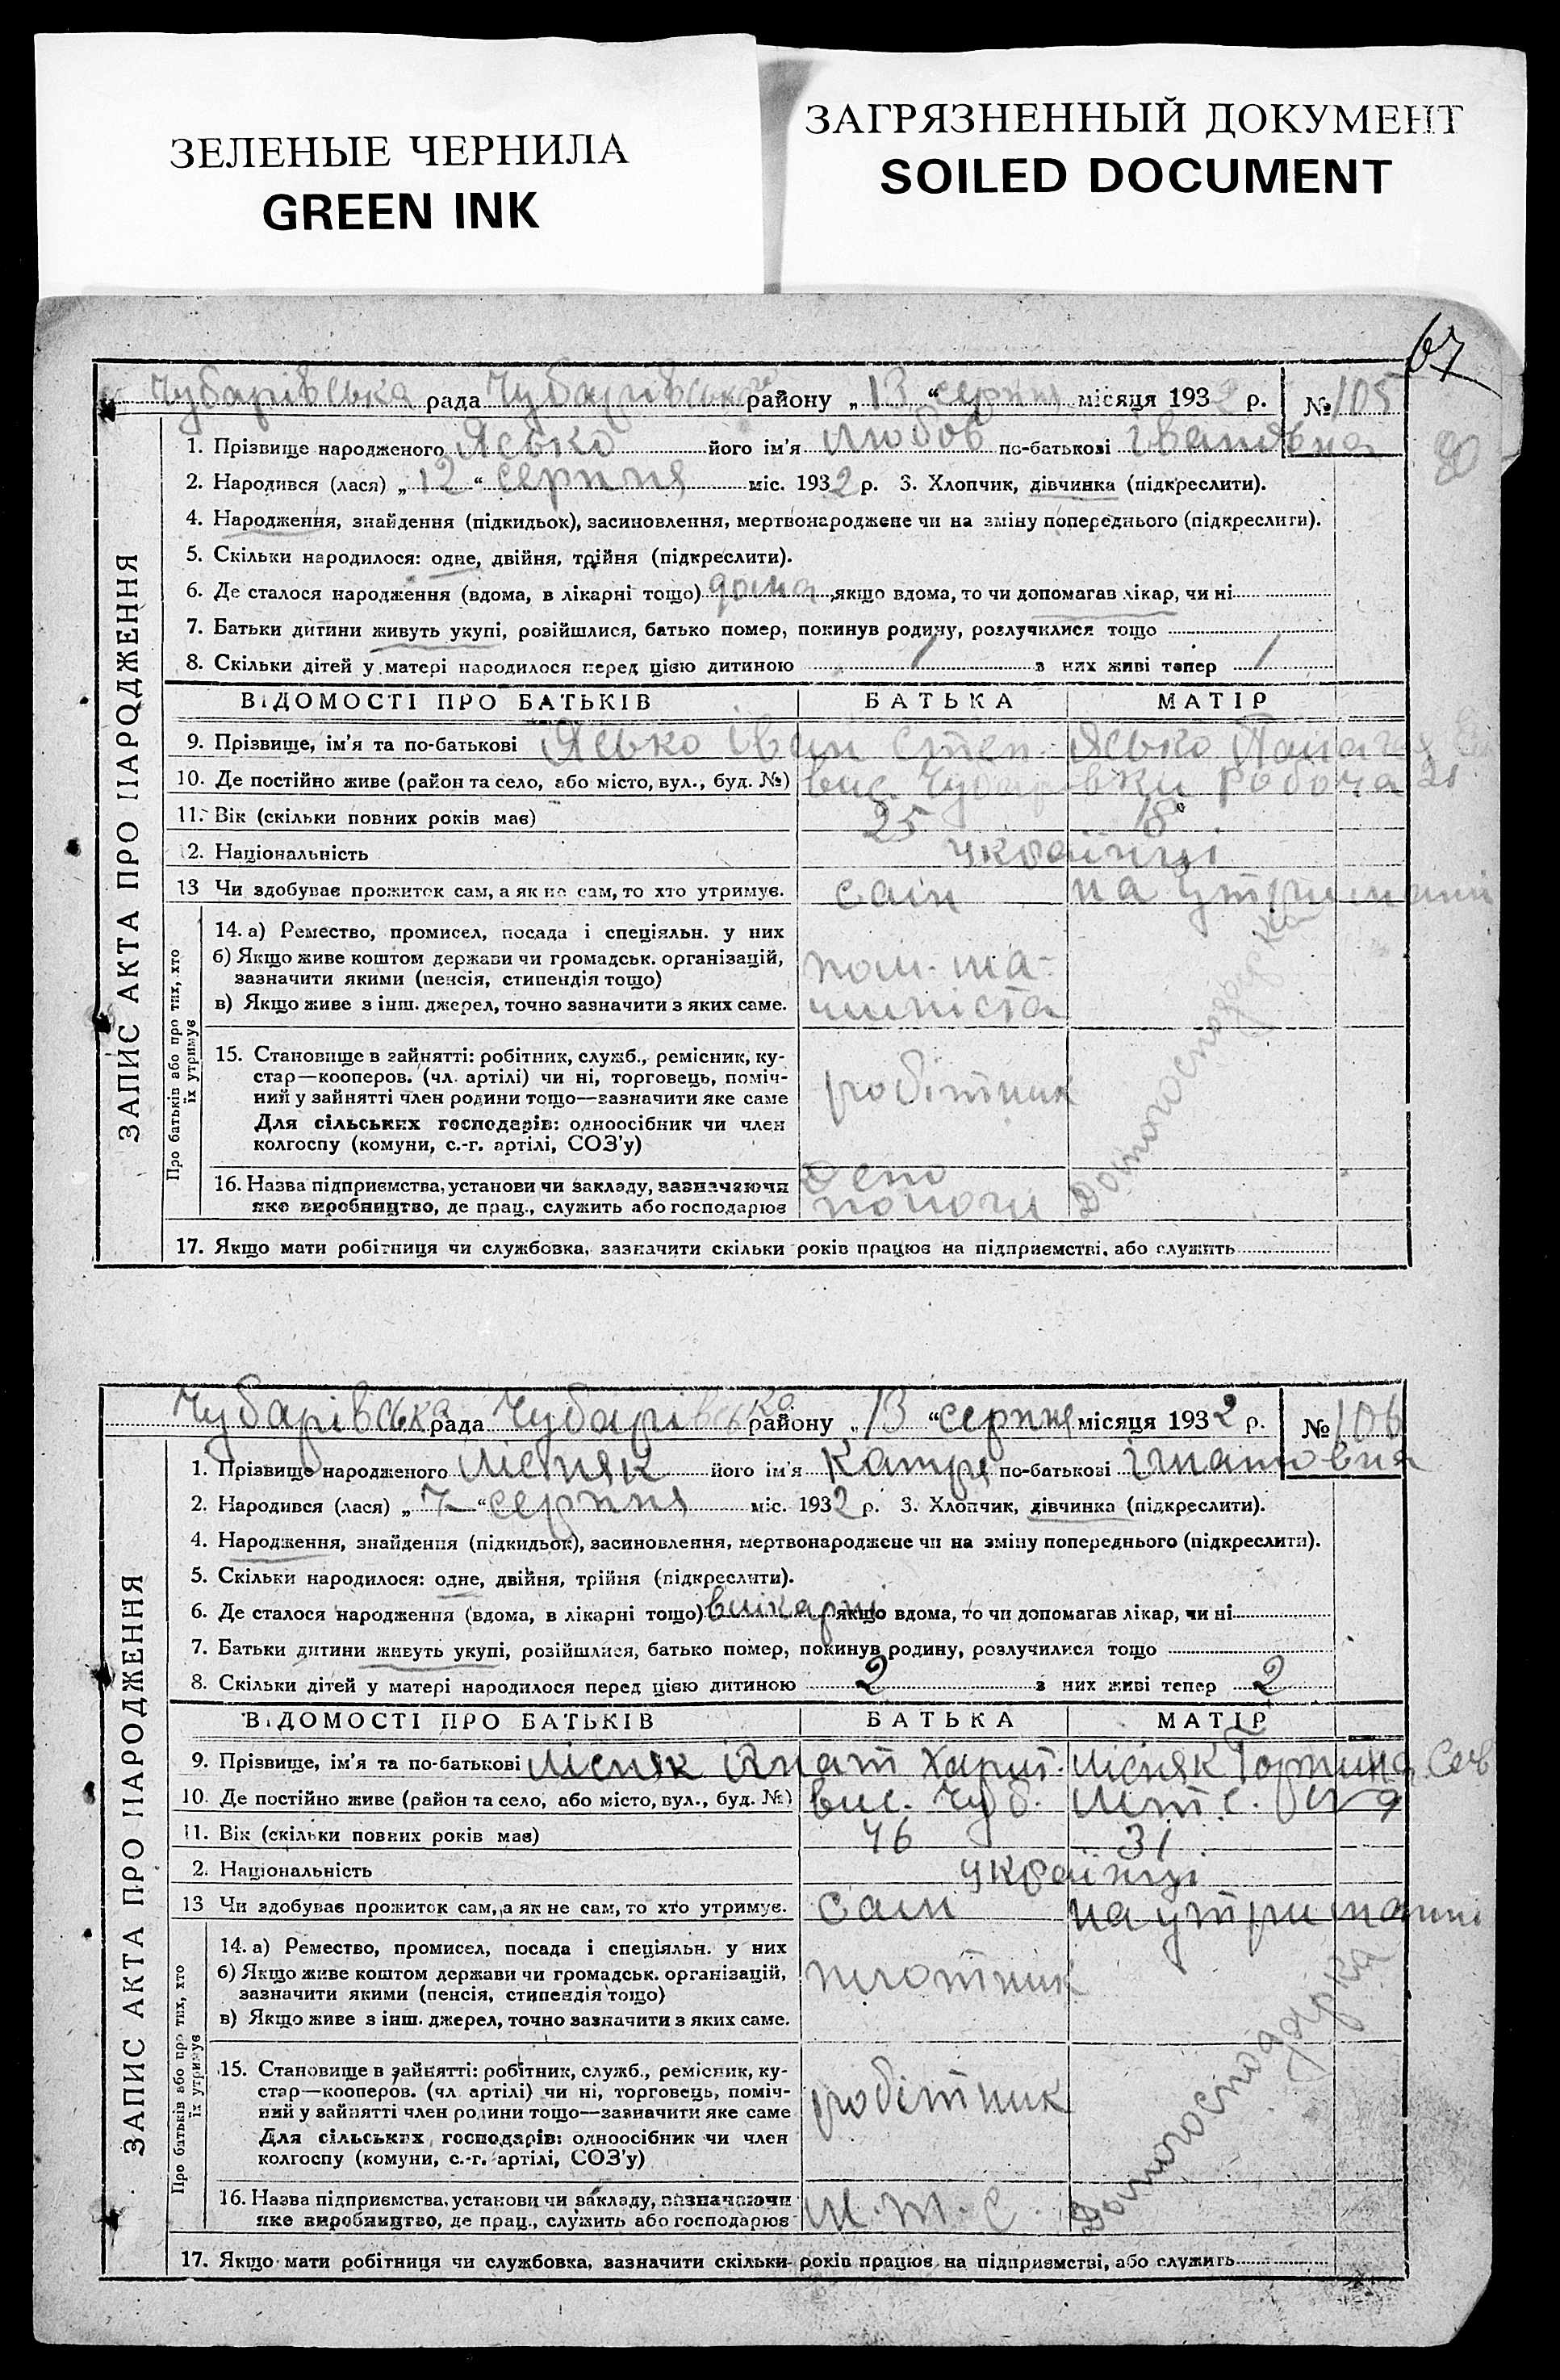 ЗЕЛЕНЫЕ ЧЕРНИЛА
GREEN INK
ЗАГРЯЗНЕННЫЙ ДОКУМЕНТ
SOILED DOCUMENT
67
Чубарівська рада Чубарівського району „13“ серпня місяця 1932 р. № 105
1. Прізвище народженого Ясько його ім'я Любов по-батькові Івановна
2. Народився (лася) „12“ серпня міс. 1932 р. 3. Хлопчик, дівчинка (підкреслити).
4. Народження, знайдення (підкидьок), засиновлення, мертвонароджене чи на зміну попереднього (підкреслити).
5. Скільки народилося: одне, двійня, трійня (підкреслити).
6. Де сталося народження (вдома, в лікарні тощо) дома, якщо вдома, то чи допомагав лікар, чи ні
7. Батьки дитини живуть укупі, розійшлися, батько помер, покинув родину, розлучилися тощо
8. Скільки дітей у матері народилося перед цією дитиною 1 з них живі тепер 1
ЗАПИС АКТА ПРО НАРОДЖЕННЯ
ВІДОМОСТІ ПРО БАТЬКІВ БАТЬКА МАТІР
9. Прізвище, ім'я та по-батькові Ясько Іван Степ. Ясько
10. Де постійно живе (район та село, або місто, вул., буд. №) вис. Чубарівки Робоча 21
11. Вік (скільки повних років має) 25 18
12. Національність українці
13 Чи здобуває прожиток сам, а як не сам, то хто утримує. сам на утриманні
Про батьків або про тих, хто їх утримує
14. а) Ремество, промисел, посада і спеціяльн. у них
б) Якщо живе коштом держави чи громадськ. організацій,
зазначити якими (пенсія, стипендія тощо)
в) Якщо живе з інш. джерел, точно зазначити з яких саме.
пом. ма-
шиніста
15. Становище в зайнятті: робітник, служб., ремісник, ку-
стар—кооперов. (чл. артілі) чи ні, торговець, поміч-
ний у зайнятті член родини тощо—зазначити яке саме
Для сільських господарів: одноосібник чи член
колгоспу (комуни, с.-г. артілі, СОЗ'у)
робітник
Домогосподарка
16. Назва підприємства, установи чи закладу, зазначаючи
яке виробництво, де прац., служить або господарює
Депо
пологи
17. Якщо мати робітниця чи службовка, зазначити скільки років працює на підприємстві, або служить
Чубарівська рада Чубарівська району „13“ серпня місяця 1932 р. № 106
1. Прізвище народженого Лісняк його ім'я Катря по-батькові Ігнатовна
2. Народився (лася) „7“ серпня міс. 1932 р. 3. Хлопчик, дівчинка (підкреслити).
4. Народження, знайдення (підкидьок), засиновлення, мертвонароджене чи на зміну попереднього (підкреслити).
5. Скільки народилося: одне, двійня, трійня (підкреслити).
6. Де сталося народження (вдома, в лікарні тощо) влікарні якщо вдома, то чи допомагав лікар, чи ні
7. Батьки дитини живуть укупі, розійшлися, батько помер, покинув родину, розлучилися тощо
8. Скільки дітей у матері народилося перед цією дитиною 2 з них живі тепер 2
ЗАПИС АКТА ПРО НАРОДЖЕННЯ
ВІДОМОСТІ ПРО БАТЬКІВ БАТЬКА МАТІР
9. Прізвище, ім'я та по-батькові Лісняк Ігнат Харит. Лісняк Горпина
10. Де постійно живе (район та село, або місто, вул., буд. №) вис. Чуб. М.т.с. № 9
11. Вік (скільки повних років має) 46 31
2. Національність українці
13 Чи здобуває прожиток сам, а як не сам, то хто утримує. сам на утриманні
Про батьків або про тих, хто їх утримує
14. а) Ремество, промисел, посада і спеціяльн. у них
б) Якщо живе коштом держави чи громадськ. організацій,
зазначити якими (пенсія, стипендія тощо)
в) Якщо живе з інш. джерел, точно зазначити з яких саме.
плотник
15. Становище в зайнятті: робітник, служб., ремісник, ку-
стар—кооперов. (чл. артілі) чи ні, торговець, поміч-
ний у зайнятті член родини тощо—зазначити яке саме
Для сільських господарів: одноосібник чи член
колгоспу (комуни, с.-г. артілі, СОЗ'у)
робітник
Домогосподарка
16. Назва підприємства, установи чи закладу, зазначаючи
яке виробництво, де прац., служить або господарює
М.т.с.
17. Якщо мати робітниця чи службовка, зазначити скільки років працює на підприємстві, або служить